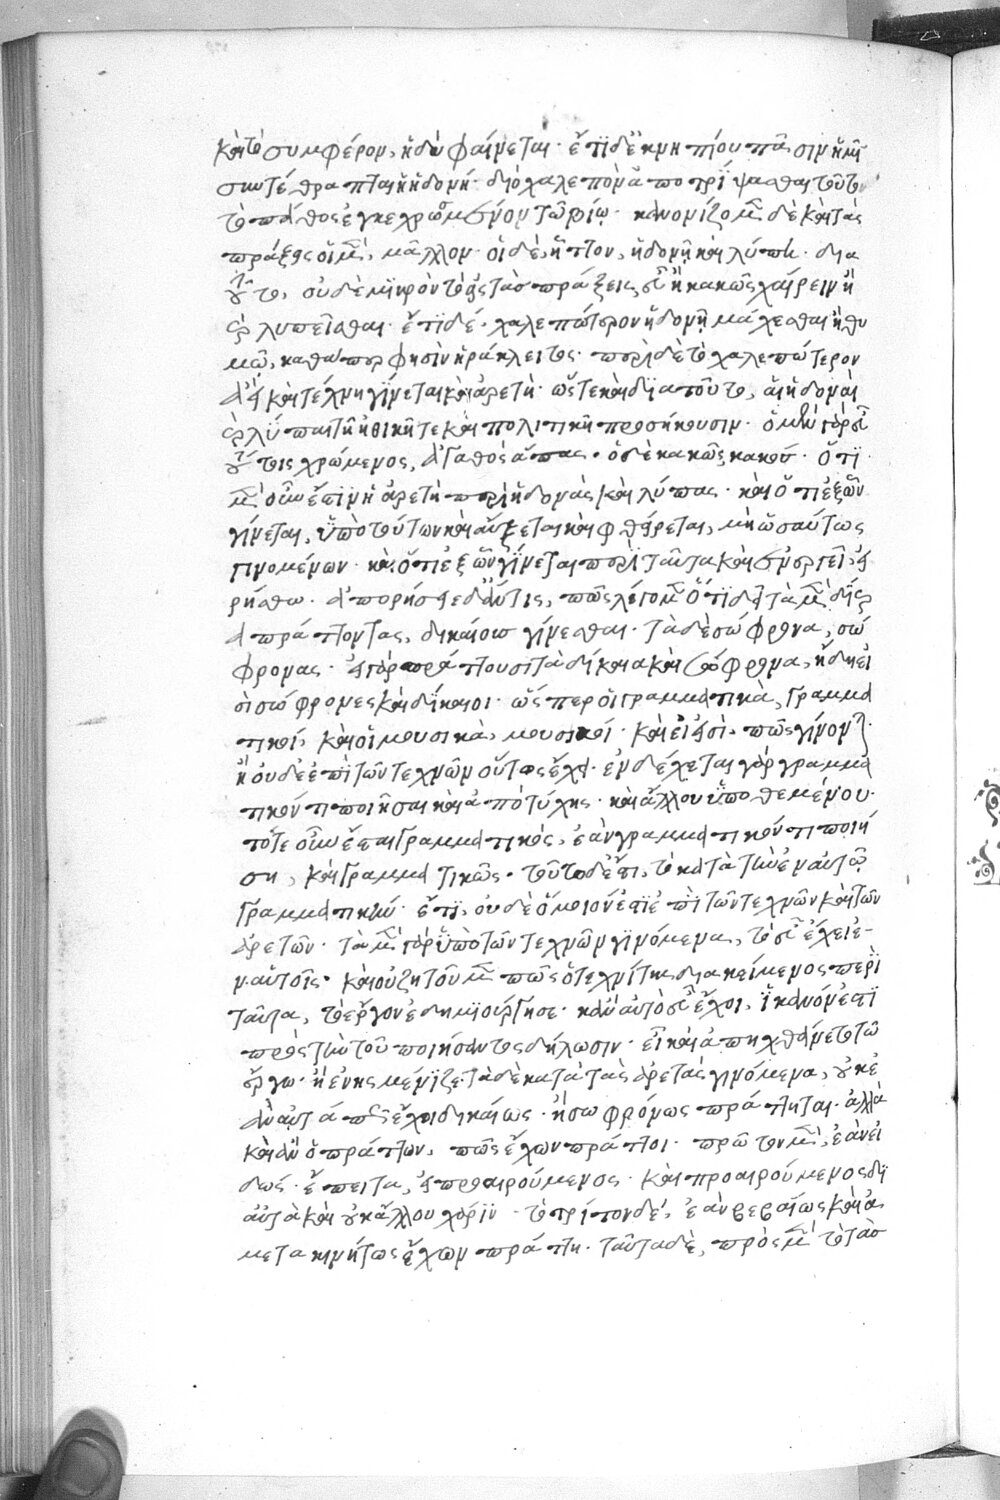 καὶ τὸ συμφέρον, ἡδὺ φαίνεται· ἔτι δὲ ἐκ νηπίου πᾶσιν ἡμῖν
συντέθραπται ἡ ἡδονή· διὸ χαλεπὸν ἀποτρίψασθαι τοῦτο
τὸ πάθος ἐγκεχρωσμένον τῷ βίῳ· κανονίζομεν δὲ καὶ τὰς
πράξεις οἱ μὲν, μᾶλλον· οἱ δὲ, ἧττον, ἡδονῇ καὶ λύπῃ· δια
τοῦτο, οὐ δὲ μικρὸν τὸ εἰς τὰς πράξεις εὖ ἢ κακῶς χαίρειν ἢ
λυπεῖσθαι· ἔτι δέ· χαλεπώτερον ἡδονῇ μάχεσθαι ἢ θυ
μῷ, καθάπερ φησὶν ἡράκλειτος· περὶ δὲ τὸ χαλεπώτερον
ἀεὶ καὶ τέχνη γίνεται καὶ ἀρετή· ὥστε καὶ δια τοῦτο, αἱ ἡδοναὶ
καὶ λῦπαι τῇ ἠθικῇ τε καὶ πολιτικῇ προσήκουσιν· ὁ μὲν γὰρ εὖ
τούτοις χρώμενος, ἀγαθὸς ἅπας· ὁ δὲ κακῶς, κακός· ὅτι
μὲν οὖν ἔστιν ἡ ἀρετὴ περὶ ἡδονὰς καὶ λύπας· καὶ ὅτι ἐξ ὧν
γίνεται, ὑπὸ τούτων καὶ αὔξεται καὶ φθείρεται, μὴ ὡσαύτως
γινομένων· καὶ ὅτι ἐξ ὧν γίνεται περὶ ταῦτα καὶ ἐνεργεῖ, εἰ
ρήσθω· ἀπορήσειε δ' ἄν τις, πῶς λέγομεν ὅτι δεῖ τὰ μὲν δίκαι
α πράττοντας, δικαίους γίνεσθαι· τὰ δὲ σώφρονα, σώ
φρονας· εἰ γὰρ πράττουσι τὰ δίκαια καὶ σώφρονα, ἤδη εἰ
σὶ σώφρονες καὶ δίκαιοι· ὥσπερ οἱ γραμματικὰ, γραμμα
τικοί, καὶ οἱ μουσικὰ, μουσικοί· καὶ εἰ εἰσὶ· πῶς γίνονται·
ἢ οὐδὲ ἐπὶ τῶν τεχνῶν οὕτως ἔχει· ἐνδέχεται γὰρ γραμμα
τικόν τι ποιῆσαι καὶ ἀπὸ τύχης· καὶ ἄλλου ὑποθεμένου·
τότε οὖν ἔσται γραμματικὸς, ἐὰν γραμματικόν τι ποιή
σῃ, καὶ γραμματικῶς· τοῦτο δ' ἔστι, τὸ κατὰ τὴν ἐν αὑτῷ
γραμματικήν· ἔτι, οὐδὲ ὅμοιόν ἐστιν ἐπὶ τῶν τεχνῶν καὶ τῶν
ἀρετῶν· τὰ μὲν γὰρ ὑπὸ τῶν τεχνῶν γινόμενα, τὸ εὖ ἔχει ἐ-
ν αὑτοῖς· καὶ οὐ ζητοῦμεν πῶς ὁ τεχνίτης διακείμενος περὶ
ταῦτα, τὸ ἔργον ἐδημιούργησε· κἂν αὐτὸ εὖ ἔχοι, ἱκανόν ἐστι
πρὸς τὴν τοῦ ποιήσαντος δήλωσιν· εἰ καὶ ἀπηχθάνετο τῷ
ἔργῳ· ἢ ἐνησμένιζε· τὰ δὲ κατὰ τὰς ἀρετὰς γινόμενα, οὐκ ἐ
ὰν αὐτά πως ἔχοι δικαίως· ἢ σωφρόνως πράττηται· ἀλλὰ
καὶ ἂν ὁ πράττων, πῶς ἔχων πράττοι· πρῶτον μὲν, ἐὰν εἰ
δώς· ἔπειτα, εἰ προαιρούμενος· καὶ προαιρούμενος δι'
αὐτὰ καὶ οὐκ ἄλλου χάριν· τὸ τρίτον δὲ, ἐὰν βεβαίως καὶ ἀ
μετακινήτως ἔχων πράττῃ· ταῦτα δὲ, πρὸς μὲν τὸ τὰσ